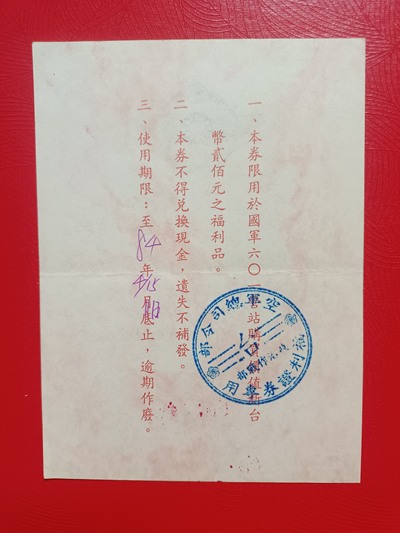 一、本券限用於國軍六〇一營站購買價值新台
幣貳佰元之福利品。
二、本券不得兌換現金，遺失不補發。
三、使用期限：至84年 月底止，逾期作廢。
空軍總司令部
福利證券專用